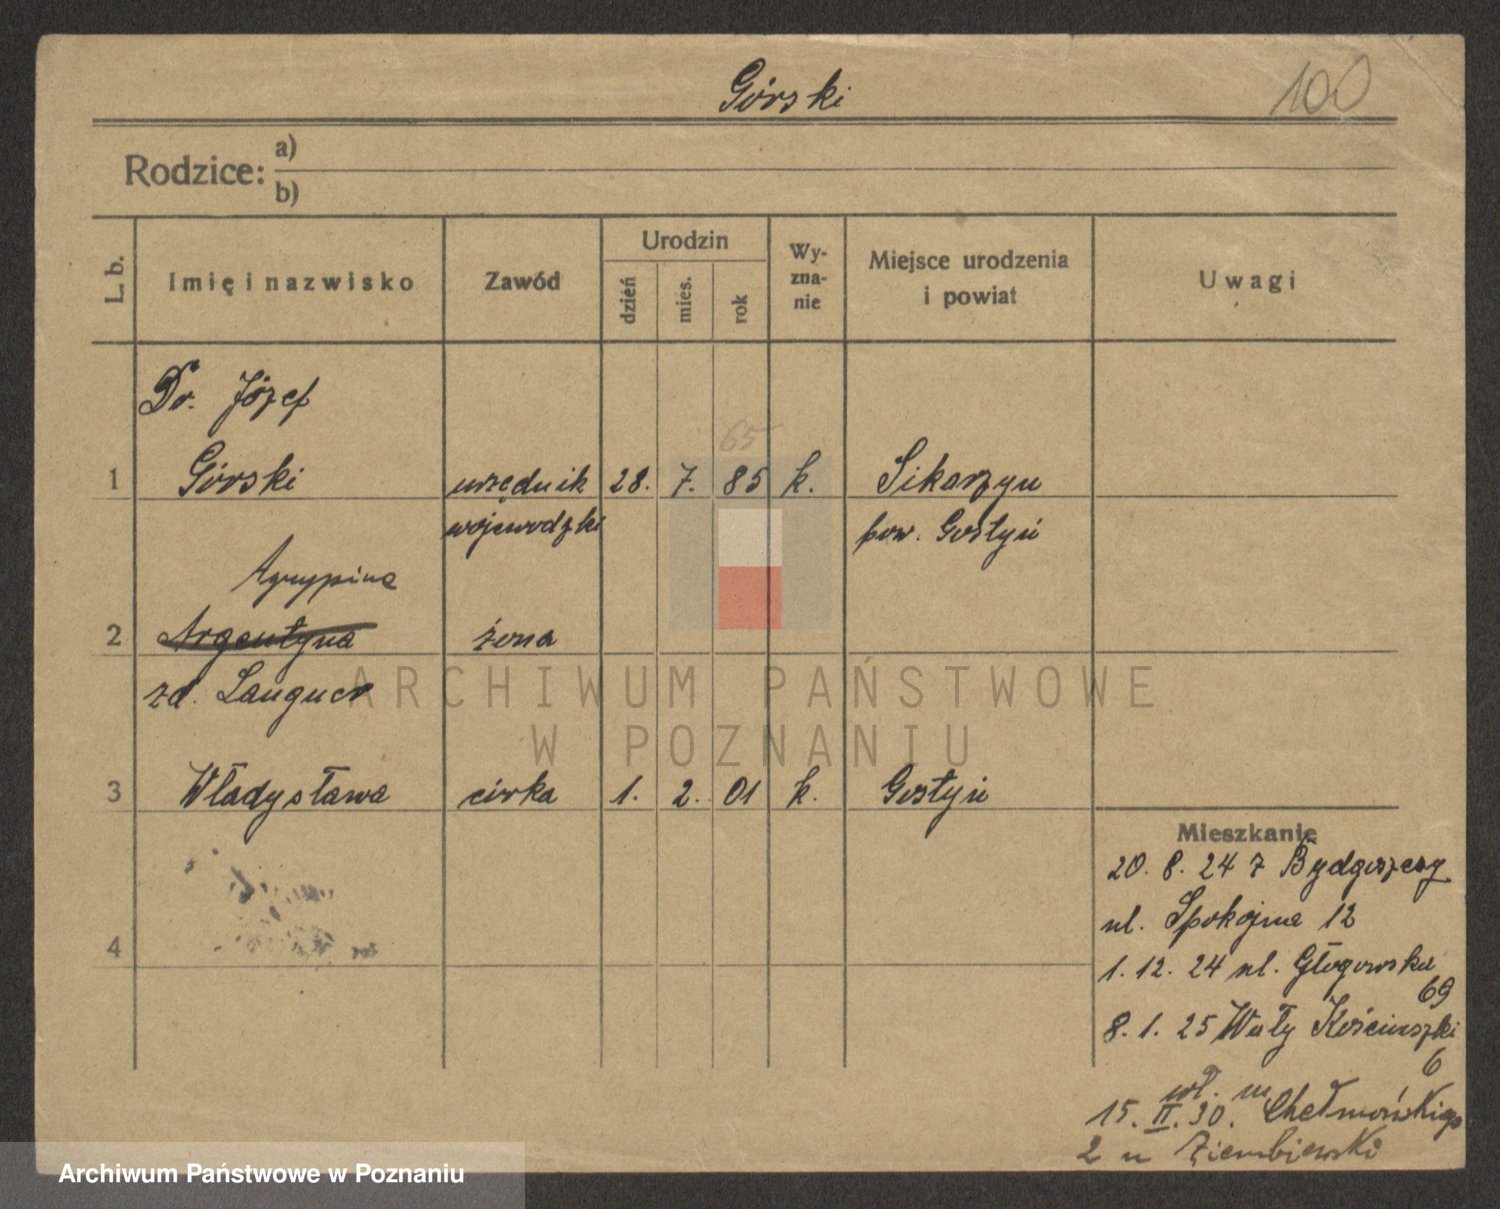 Górski
100
Rodzice: a)
b)
L. b.
Imię i nazwisko
Zawód
Urodzin
dzień
mies.
rok
Wy-
zna-
nie
Miejsce urodzenia
i powiat
Uwagi
Dr. Józef
65
1 Górski urzędnik 28. 7. 85 k. Sikorzyn
wojewodzki pow. Gostyń
Agrypina
2 Argentyna żona
zd. Languer
ARCHIWUM PAŃSTWOWE
W POZNANIU
3 Władysława córka 1. 2. 01 k. Gostyń
Mieszkanie
20. 8. 24 z Bydgoszczy
ul. Spokojna 12
4
1. 12. 24 ul. Głogowska
69
8. 1. 25 Wały Kościuszki
6
wł. m
15. II. 30. Chełmońskiego
2 u Ziembiewski
Archiwum Państwowe w Poznaniu